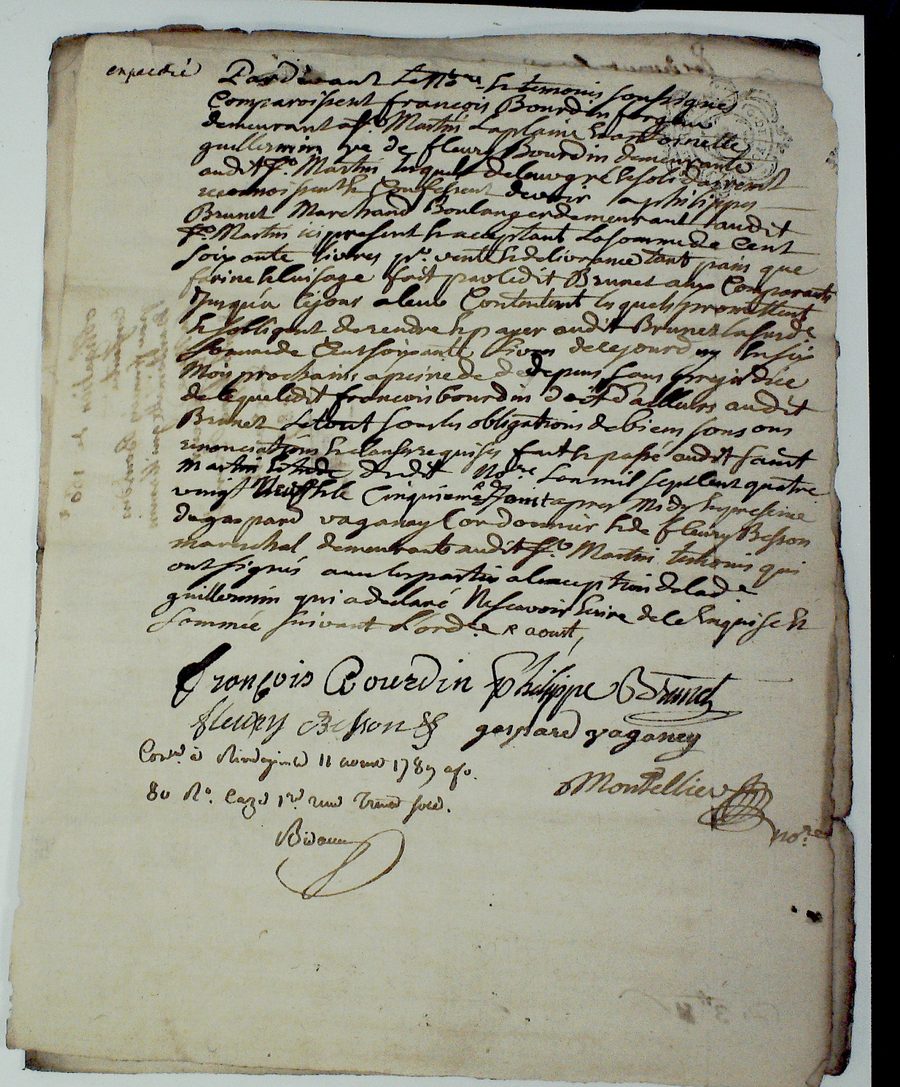 expedié
Pardevant Le Nre. & temoins soussignés
Comparoissent françois Bourdin forgeur
demeurant a St. Martin La plaine
guillermin ve de fleury Bourdin demeurante
audit St. Martin lesquels de leur gré
reconnoissent & Confessent devoir a philippe
Brunet Marchand Boulanger demeurant audit
St. Martin ici present & acceptant La somme de Cent
soixante livres pr. vente & delivrance tant pain que
farine & luisage fait par ledit Brunet aux Comparants
Jusqu'a ce jour a leur Contentement lesquels promettent
& s'obligent de rendre & payer audit Brunet La susde.
somme de Cent soixante livres de ce jourdhuy En six
Mois prochains a peine de depens sans prejudice
de ce que ledit françois bourdin doit d'ailleurs audit
Brunet Le tout sous les obligations de biens
renonciations & clauses requises fait & passé audit saint
Martin Etude dudit Nore. L'an mil sept Cent quatre
vingt Neuf & le Cinquieme aout apres Midy En presence
de gaspard vaganay Cordonnier & de fleury Besson
marechal demeurants audit St. Martin temoins qui
ont signés avec les parties a l'exception de lade.
guillermin qui a declaré Ne scavoir Ecrire de ce Enquise Et
sommée suivant L'ordce. 5 aout,
françois Bourdin philippe Brunet
fleury Besson gaspard vaganey
Conlé. à Rivedegier le 11 aoust 1789 fo.
80 Ro. Caze 1re. Trente sols.
Montellier
nore.